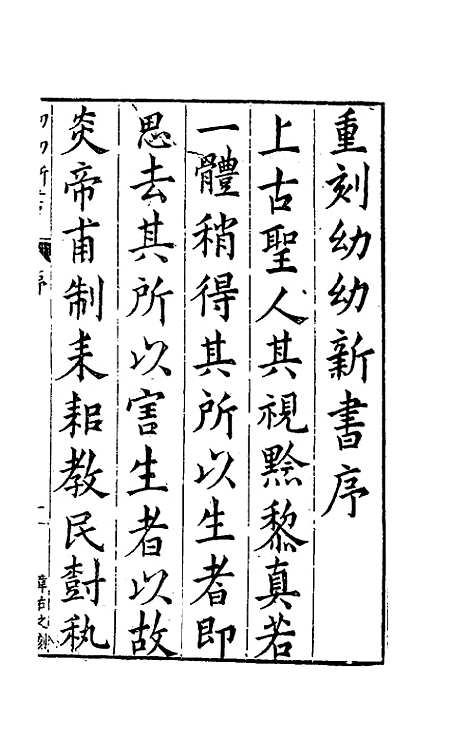 重刻幼幼新書序
上古聖人其視黔黎真若
一體稍得其所以生者即
思去其所以害生者以故
炎帝甫制耒耜教民樹秇
幼幼新書 序 一
章右之刻